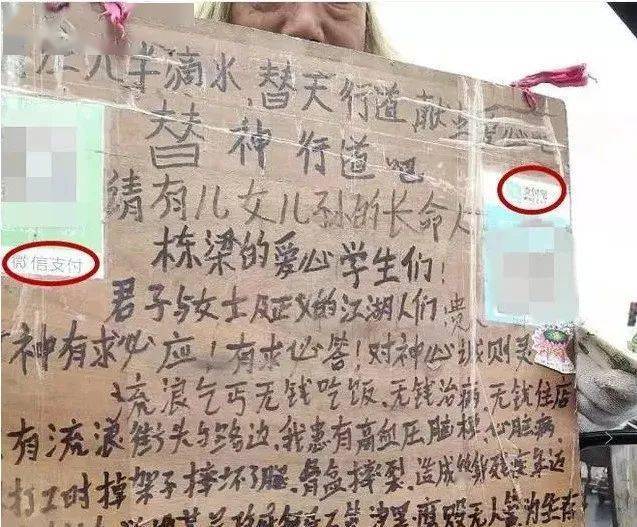 滴水,替天行道献
替神行道吧
请有儿女儿孙的长命人
栋梁的爱心学生们!
君子与女士及正义的江湖人们 贵
神有求必应!有求必答!对神心诚则灵
流浪乞丐无钱吃饭、无钱治病、无钱住店
有流浪街头与路边,我患有高血压脑梗、心脏病、
打工时掉架子摔坏了腿、骨盆摔裂、造成
无人管为生存
微信支付
支付宝